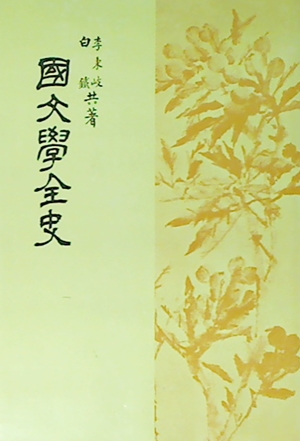 李秉岐
白鐵
共著
國文學全史